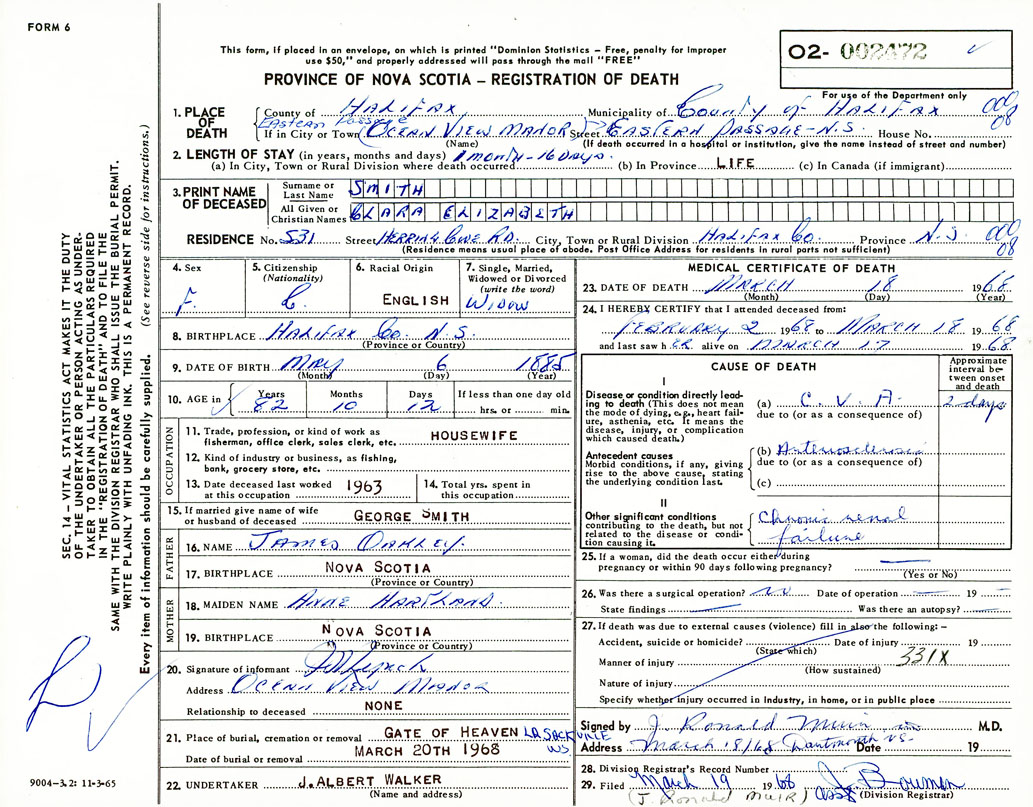 FORM 6
This form, if placed in an envelope, on which is printed "Dominion Statistics – Free, penalty for improper
use $50," and properly addressed will pass through the mail "FREE"
PROVINCE OF NOVA SCOTIA – REGISTRATION OF DEATH
O2- 002472
For use of the Department only
SEC. 14 – VITAL STATISTICS ACT MAKES IT THE DUTY
OF THE UNDERTAKER OR PERSON ACTING AS UNDER-
TAKER TO OBTAIN ALL THE PARTICULARS REQUIRED
IN THE "REGISTRATION OF DEATH" AND TO FILE THE
SAME WITH THE DIVISION REGISTRAR WHO SHALL ISSUE THE BURIAL PERMIT.
WRITE PLAINLY WITH UNFADING INK. THIS IS A PERMANENT RECORD.
Every item of information should be carefully supplied. (See reverse side for instructions.)
1. PLACE OF DEATH
County of HALIFAX Municipality of County of HALIFAX 000 08
Eastern Passage
If in City or Town (OCEAN VIEW MANOR) Street EASTERN PASSAGE-N.S. House No.
(Name) (If death occurred in a hospital or institution, give the name instead of street and number)
2. LENGTH OF STAY (in years, months and days) 1 month-16 Days.
(a) In City, Town or Rural Division where death occurred (b) In Province LIFE (c) In Canada (if immigrant)
3. PRINT NAME OF DECEASED
Surname or Last Name SMITH
All Given or Christian Names CLARA ELIZABETH
RESIDENCE No. 531 Street HERRING COVE RD. City, Town or Rural Division HALIFAX CO. Province N.S. 000 08
(Residence means usual place of abode. Post Office Address for residents in rural parts not sufficient)
4. Sex F.
5. Citizenship (Nationality) C.
6. Racial Origin ENGLISH
7. Single, Married, Widowed or Divorced (write the word) WIDOW
8. BIRTHPLACE HALIFAX CO. N.S.
(Province or Country)
9. DATE OF BIRTH MAY 6 1885
(Month) (Day) (Year)
10. AGE in Years 82 Months 10 Days 12 If less than one day old hrs. or min.
OCCUPATION
11. Trade, profession, or kind of work as fisherman, office clerk, sales clerk, etc. HOUSEWIFE
12. Kind of industry or business, as fishing, bank, grocery store, etc.
13. Date deceased last worked at this occupation 1963
14. Total yrs. spent in this occupation
15. If married give name of wife or husband of deceased GEORGE SMITH
FATHER
16. NAME JAMES OAKLEY.
17. BIRTHPLACE NOVA SCOTIA
(Province or Country)
MOTHER
18. MAIDEN NAME ANNE HARTLAND.
19. BIRTHPLACE NOVA SCOTIA
(Province or Country)
20. Signature of informant
Address OCEAN VIEW MANOR
Relationship to deceased NONE
21. Place of burial, cremation or removal GATE OF HEAVEN LR SACKVILLE NS.
Date of burial or removal MARCH 20TH 1968
22. UNDERTAKER J. ALBERT WALKER
(Name and address)
9004–3.2: 11-3-65
MEDICAL CERTIFICATE OF DEATH
23. DATE OF DEATH MARCH 18 1968
(Month) (Day) (Year)
24. I HEREBY CERTIFY that I attended deceased from:
FEBRURRY 2 1968 to MARCH 18 1968
and last saw h ER alive on MARCH 17 1968.
CAUSE OF DEATH
Approximate interval between onset and death
I
Disease or condition directly leading to death (This does not mean the mode of dying, e.g., heart failure, asthenia, etc. It means the disease, injury, or complication which caused death.)
(a) C. V. A. 2 days
due to (or as a consequence of)
Antecedent causes
Morbid conditions, if any, giving rise to the above cause, stating the underlying condition last.
(b) Arteriosclerosis
due to (or as a consequence of)
(c)
II
Other significant conditions contributing to the death, but not related to the disease or condition causing it.
Chronic renal
failure
25. If a woman, did the death occur either during
pregnancy or within 90 days following pregnancy?
(Yes or No)
26. Was there a surgical operation? no Date of operation 19
State findings Was there an autopsy?
27. If death was due to external causes (violence) fill in also the following: –
Accident, suicide or homicide? Date of injury 19
(State which)
Manner of injury 331X
(How sustained)
Nature of injury
Specify whether injury occurred in industry, in home, or in public place
Signed by J. Ronald Muir M.D.
Address March 18/68 Dartmouth NS. Date 19
28. Division Registrar's Record Number
29. Filed March 19 1968 J. Bowman
(J. Ronald MUIR) asst (Division Registrar)